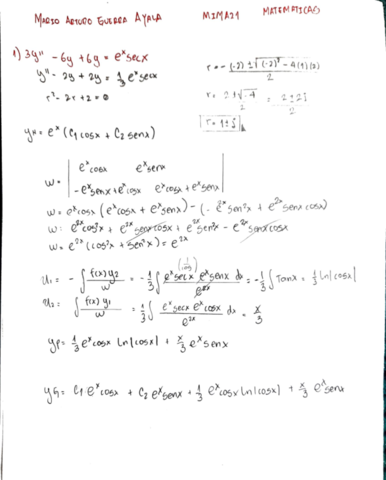 MARIO ARTURO GUERRA AYALA M2MA21 MATEMATICAS
1) 3y'' - 6y + 6y = e^x secx
y'' - 2y + 2y = 1/3 e^x secx
r² - 2r + 2 = 0
r = -(-2) ± √((-2)² - 4(1)(2)) / 2
r = 2 ± √-4 / 2 = 2 ± 2j / 2
r = 1 ± j
yH = e^x (C1 cosx + C2 senx)
w = | e^x cosx e^x senx |
| -e^x senx + e^x cosx e^x cosx + e^x senx |
w = e^x cosx (e^x cosx + e^x senx) - (-e^2x sen²x + e^2x senx cosx)
w: e^2x cos²x + e^2x senx cosx + e^2x sen²x - e^2x senx cosx
w = e^2x (cos²x + sen²x) = e^2x
u1 = - ∫ f(x) y2 / w = -1/3 ∫ e^x secx e^x senx dx / e^2x = -1/3 ∫ Tanx = 1/3 ln|cosx|
u2 = ∫ f(x) y1 / w = 1/3 ∫ e^x secx e^x cosx / e^2x dx = x/3
yp = 1/3 e^x cosx ln|cosx| + x/3 e^x senx
yG = C1 e^x cosx + C2 e^x senx + 1/3 e^x cosx ln|cosx| + x/3 e^x senx